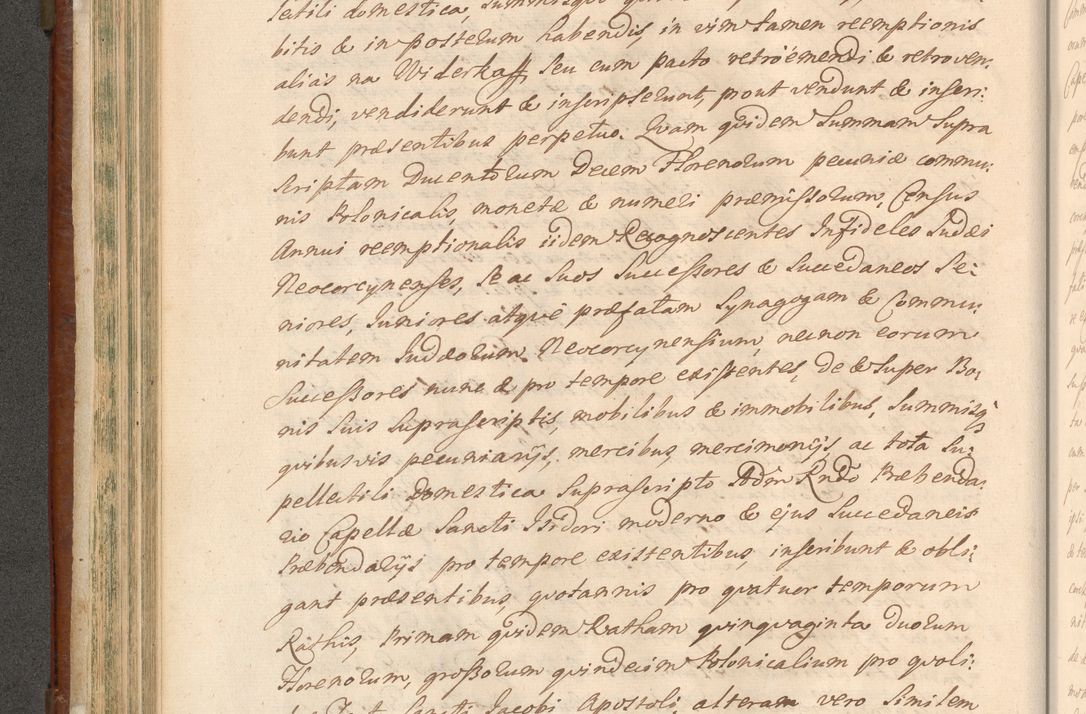 lectili domestica, summisque
bitis & in posterum habendis, in vim tamen reemptionis
alias na Widerkaff seu cum pacto retroëmendi & retroven:
dendi, vendiderunt & inscripserunt, prout vendunt & inscri:
bunt præsentibus perpetuo. Quam quidem Summam Supra
scriptam Ducentorum Decem Florenorum pecuniæ commu:
nis Polonicalis, monetæ & numeri præmissorum, Census
Annui reemptionalis iidem Recognoscentes Infideles Judæi
Neocorcynenses, se ac suos Successores & Succedaneos Se:
niores, Juniores atque præfatam Synagogam & Commu:
nitatem Judæorum Neocorcynensium, necnon eorum
Successores nunc & pro tempore existentes, de & super Bo:
nis suis suprascriptis, mobilibus & immobilibus, Summisq
quibusvis pecuniarijs, mercibus, mercimonijs, ac tota Su:
pellectili Domestica Suprascripto Adm Rndo Præbenda:
rio Capellæ Sancti Isidori moderno & ejus Succedaneis
Præbendarijs pro tempore existentibus, inscribunt & obli:
gant præsentibus, quotannis pro quatuor temporum
Rathis, Primam quidem Ratham quinquaginta duorum
Florenorum, grossorum quindecim Polonicalium pro quoli:
Sancti Jacobi Apostoli, alteram vero similem